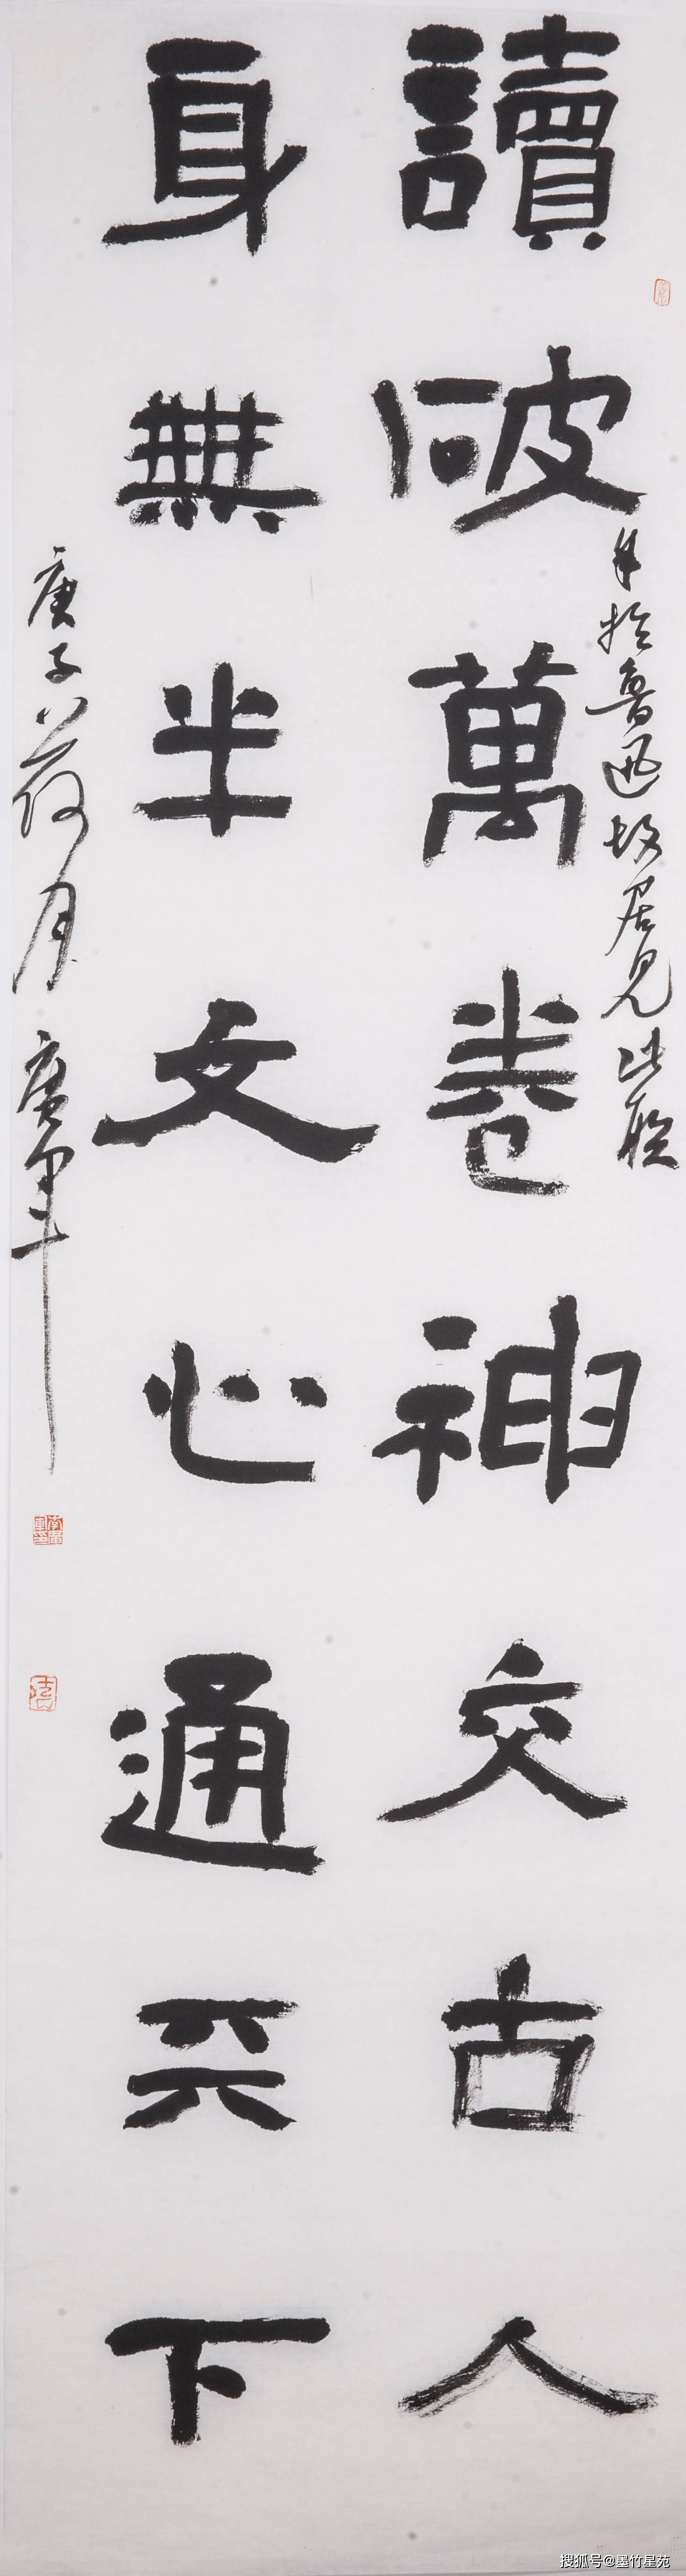 於魯迅故居見此聯
讀破萬卷神交古人
身無半文心通天下
庚子荷月 廣軍
搜狐号@墨竹星苑